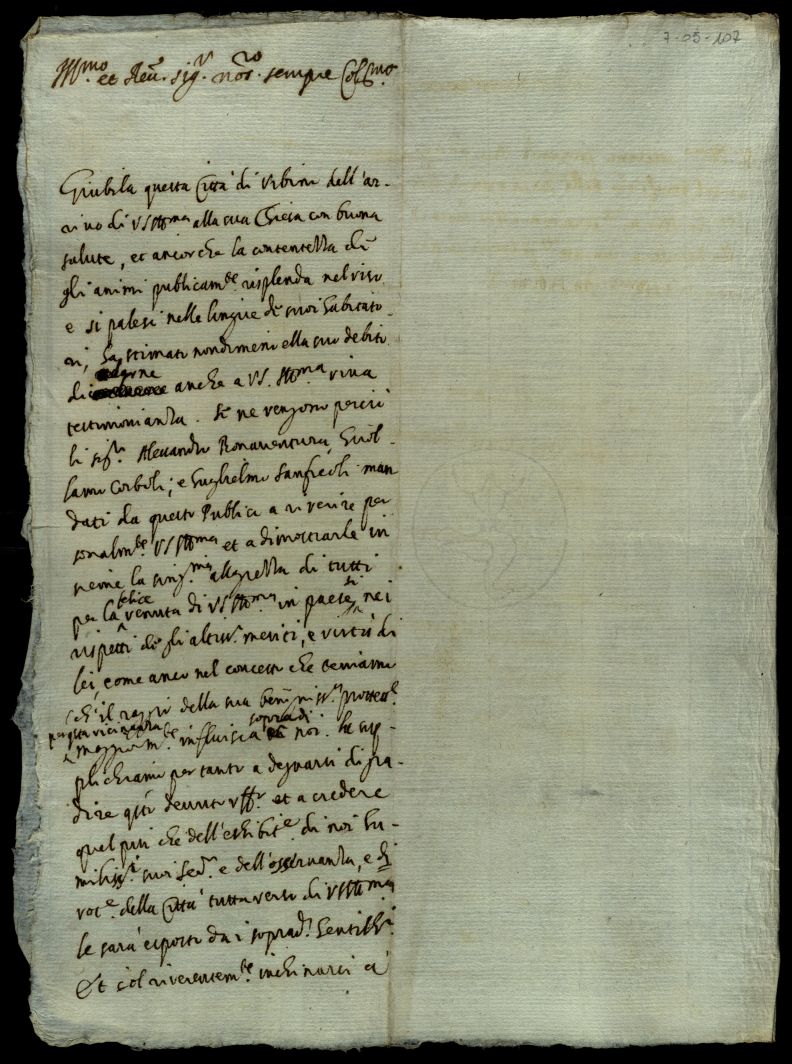 7-05-107
Ill.mo et Rev. Sig.r nos.ro sempre Col.mo
Giubila questa Città di Urbino dell'ar-
rivo di VS Ill.ma alla sua Chiesa con buona
salute, et ancorche la contentezza de
gli animi publicam.te risplenda nel viso
e si palesi nelle lingue de suoi habitato-
ri, ha stimato nondimeno ella suo debito
di darne anche a VS. Ill.ma viva
testimonianza. Se ne vengono perciò
li sig.ri Alessandro Bonaventura, Giro-
lamo Corboli, e Guglielmo Sanfreoli man
dati da questo Publico a riverire per
sonalm.te VS Ill.ma et a dimostrarle in
sieme la sing.ma allegrezza di tutti
per la felice venuta di VS. Ill.ma in paese, si nei
rispetti de gli altiss.i meriti, e virtù di
lei, come anco nel concetto che teniamo
ch'il raggio della sua benigniss.a protett.e
per q.ta vicinanza
maggiorm.te influisca sopra di noi. La sup-
plichiamo per tanto a degnarsi di gra-
dire q.to devoto uff.o et a credere
quel più che dell'esibit.e di noi hu-
miliss.i suoi Ser.i e dell'osservanza, e di
vot.e della Città tutta verso di VS Ill.ma
le sarà esposto da i soprad.i Gentilh.i
Et col riverentem.te inchinarci a